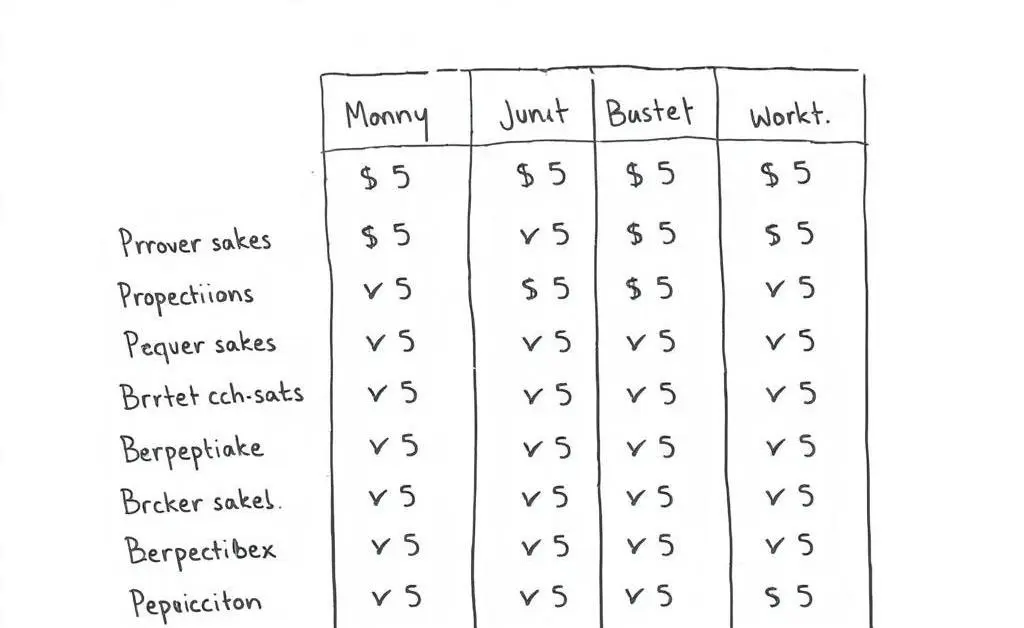 Monny Junit Bustet Workt.
$ 5 $ 5 $ 5 $ 5
Prrover sakes $ 5 v 5 $ 5 $ 5
Propectiions v 5 $ 5 $ 5 v 5
Pequer sakes v 5 v 5 v 5 v 5
Brrtet cch-sats v 5 v 5 v 5 v 5
Berpeptiake v 5 v 5 v 5 v 5
Brcker sakes. v 5 v 5 v 5 v 5
Berpectibex v 5 v 5 v 5 v 5
Pepuicciton v 5 v 5 v 5 $ 5